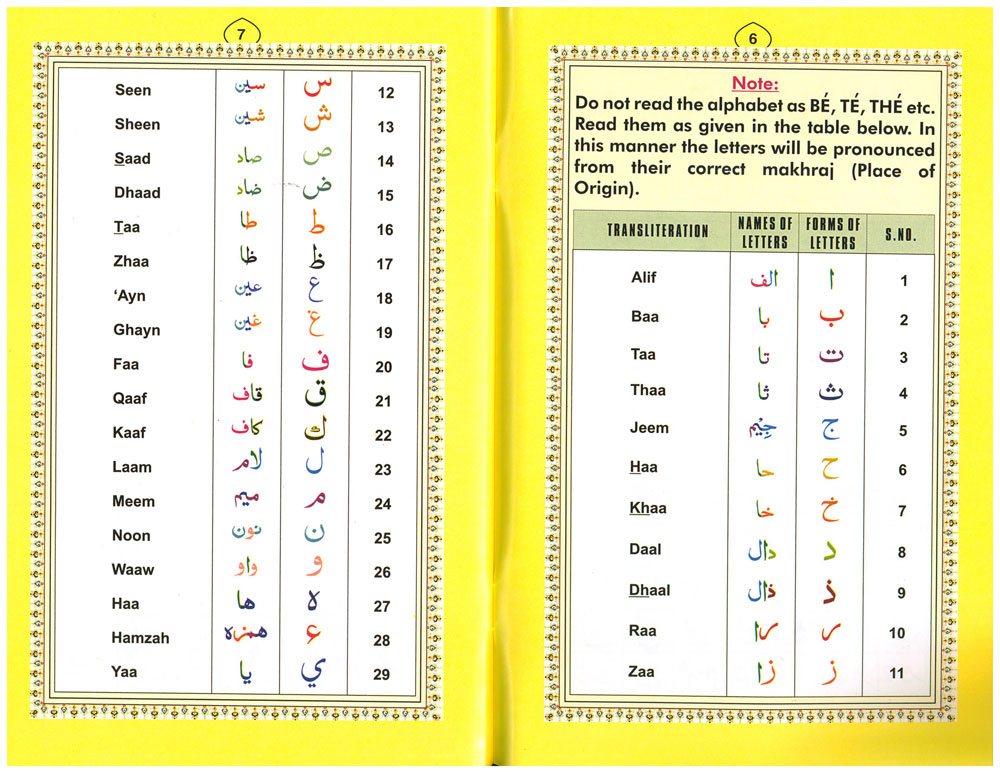 6
Note:
Do not read the alphabet as BÉ, TÉ, THÉ etc.
Read them as given in the table below. In
this manner the letters will be pronounced
from their correct makhraj (Place of
Origin).
TRANSLITERATION NAMES OF LETTERS FORMS OF LETTERS S.NO.
Alif الف ا 1
Baa با ب 2
Taa تا ت 3
Thaa ثا ث 4
Jeem جِيْم ج 5
Haa حا ح 6
Khaa خا خ 7
Daal دال د 8
Dhaal ذال ذ 9
Raa را ر 10
Zaa زا ز 11
7
Seen سين س 12
Sheen شين ش 13
Saad صاد ص 14
Dhaad ضاد ض 15
Taa طا ط 16
Zhaa ظا ظ 17
‘Ayn عين ع 18
Ghayn غين غ 19
Faa فا ف 20
Qaaf قاف ق 21
Kaaf كاف ك 22
Laam لام ل 23
Meem ميم م 24
Noon نون ن 25
Waaw واو و 26
Haa ها ه 27
Hamzah همزه ء 28
Yaa يا ي 29